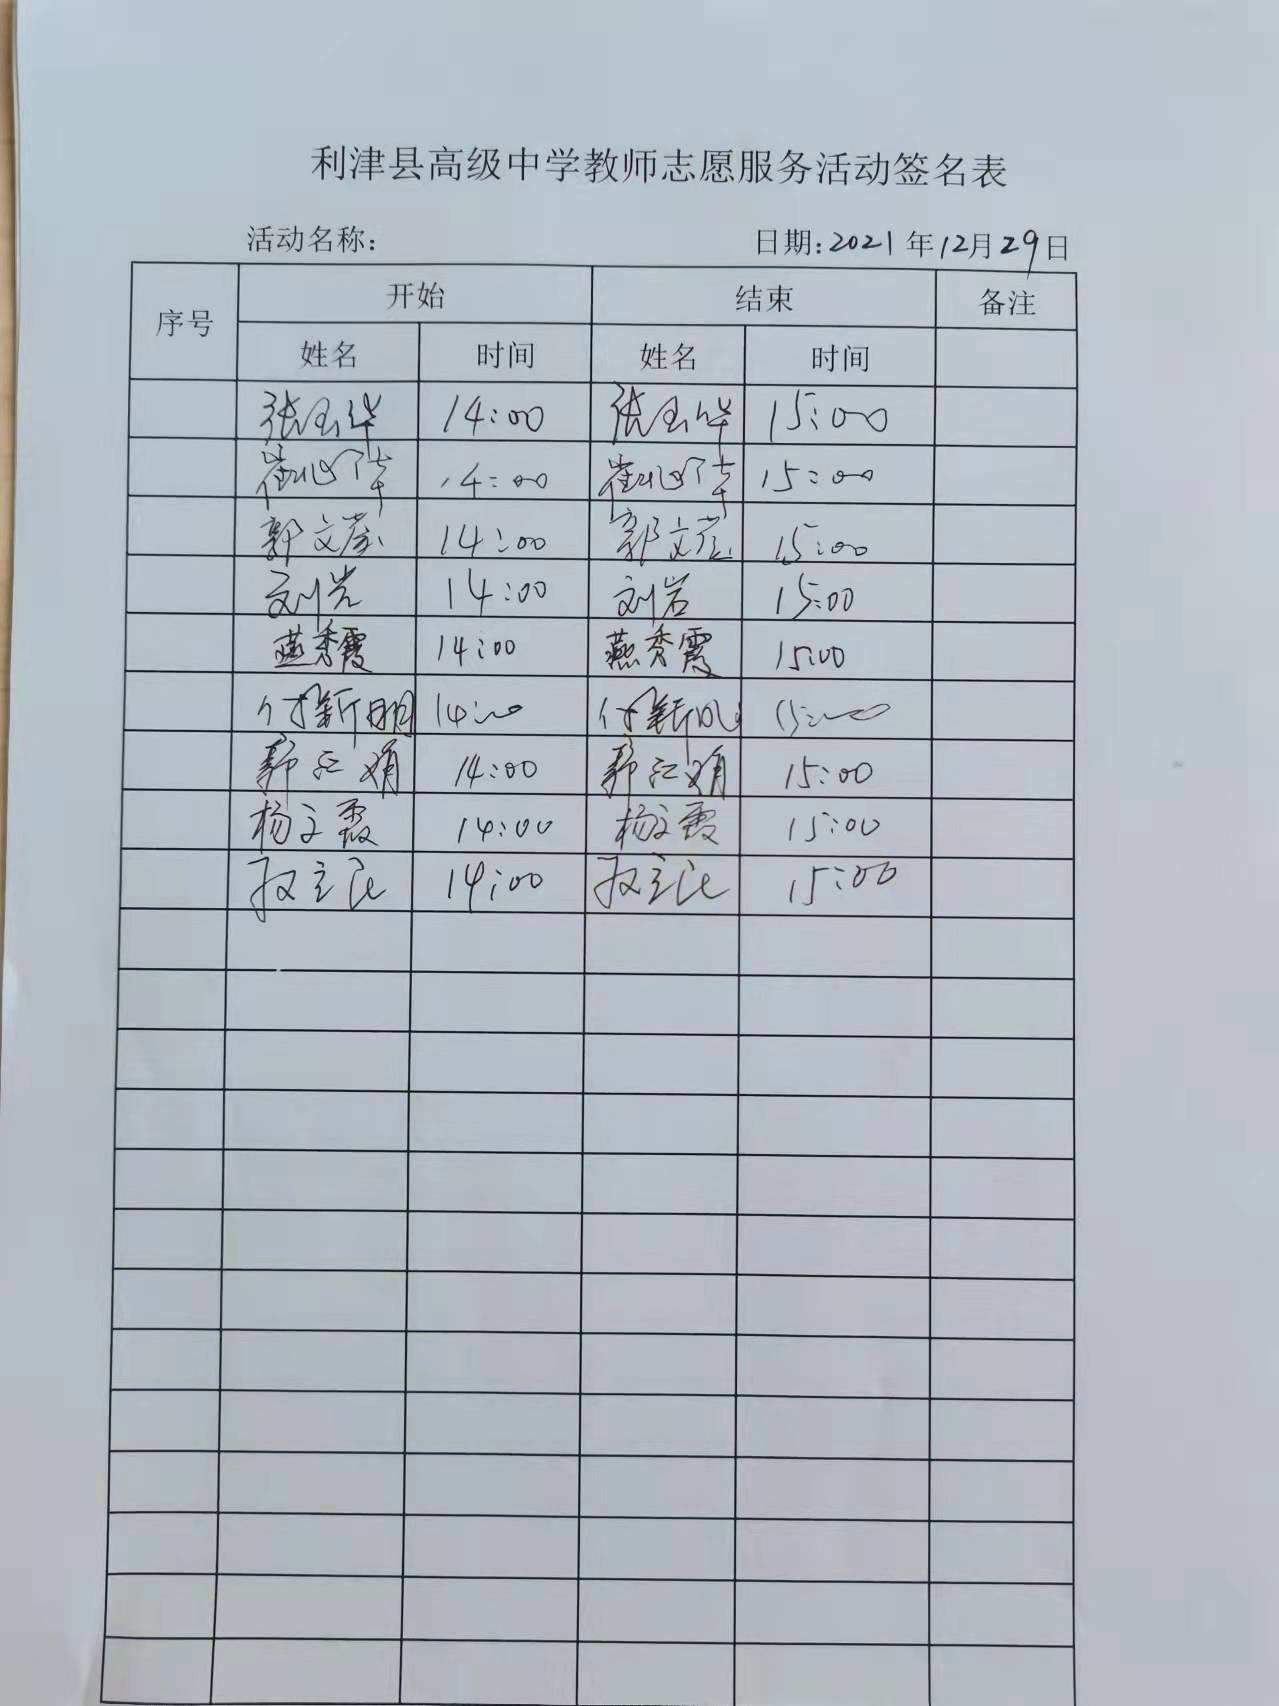 利津县高级中学教师志愿服务活动签名表
活动名称: 日期:2021年12月29日
序号 开始 结束 备注
姓名 时间 姓名 时间
张玉华 14:00 张玉华 15:00
14:00 15:00
郭文 14:00 郭文 15:00
刘岩 14:00 刘岩 15:00
燕秀霞 14:00 燕秀霞 15:00
付新明 14:00 付新 15:00
郭江娟 14:00 郭江娟 15:00
杨文霞 14:00 杨文霞 15:00
14:00 15:00